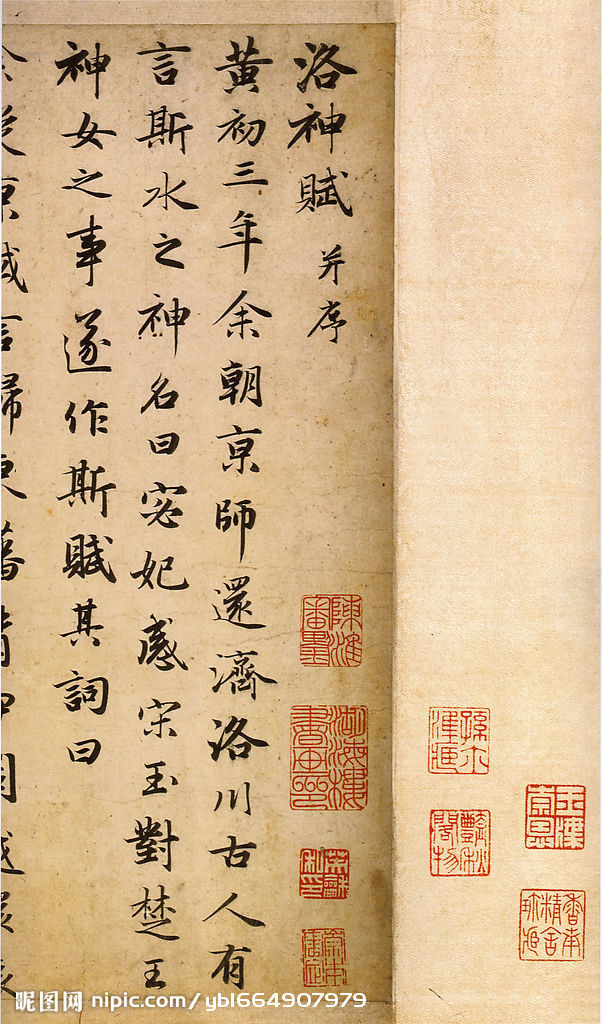 洛神賦并序
黃初三年余朝京師還濟洛川古人有
言斯水之神名曰宓妃感宋玉對楚王
神女之事遂作斯賦其詞曰
余從京域言歸東藩背伊闕越轘轅
昵图网 nipic.com/ybl664907979